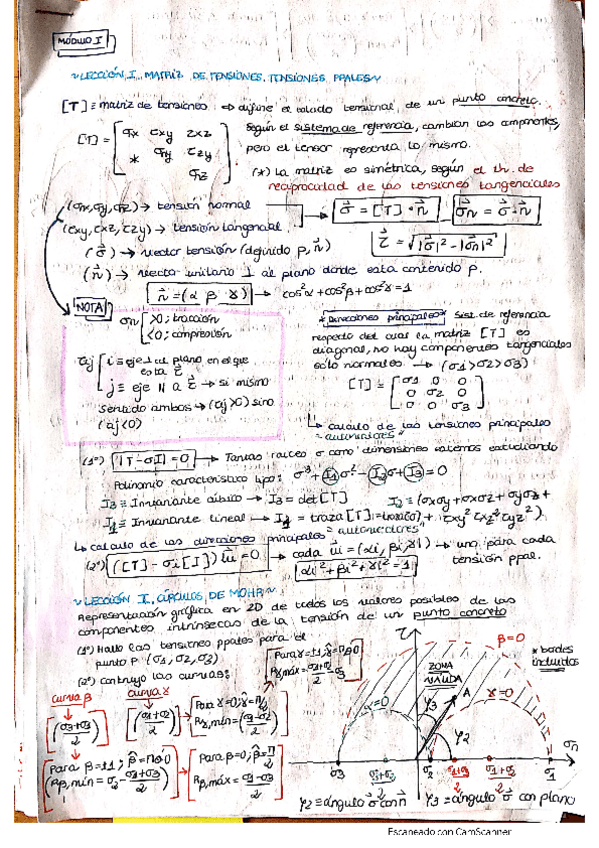 MÓDULO I
~LECCIÓN I. MATRIZ DE TENSIONES. TENSIONES PPALES~
[T] ≡ matriz de tensiones ⇒ define el estado tensional de un punto concreto.
[T] = [σnx τxy τxz
* σny τzy
σnz]
Según el sistema de referencia, cambian las componentes,
pero el tensor representa lo mismo.
(*) La matriz es simétrica, según el th. de
reciprocidad de las tensiones tangenciales
(σnx, σny, σnz) → tensión normal
σ⃗ = [T] · n⃗
σ⃗n = σ⃗ · n⃗
(τxy, τxz, τzy) → tensión tangencial
τ⃗ = √|σ⃗|² - |σn|²
(σ⃗) → vector tensión (definido p, n⃗)
(n⃗) → vector unitario ⊥ al plano donde está contenido p.
n⃗ = (α β γ) → cos²α + cos²β + cos²γ = 1
NOTA
σn { >0; tracción
<0; compresión
τij { i ≡ eje ⊥ al plano en el que
está τ⃗
j ≡ eje ∥ a τ⃗ → si mismo
sentido ambos → (τij>0) sino
(τij<0)
*Direcciones principales* Sist. de referencia
respecto del cual la matriz [T] es
diagonal, no hay componentes tangenciales
sólo normales → (σ1 > σ2 > σ3)
[T] = [σ1 0 0
0 σ2 0
0 0 σ3]
↳ cálculo de las tensiones principales
"autovalores"
(1º) |T - σI| = 0 → Tantas raíces σ como dimensiones estemos estudiando
Polinomio característico tipo: σ³ + I1σ² - I2σ + I3 = 0
I3 ≡ Invariante cúbico → I3 = det[T]
I2 = (σxσy + σxσz + σyσz +
I1 ≡ Invariante lineal → I1 = traza[T] = traza(σ)
+ τxy² τxz² τyz²)
↳ cálculo de las direcciones principales "autovectores"
(2º) ([T] - σi[I]) u⃗i = 0 → cada u⃗i = (αi, βi, γi) → una para cada
tensión ppal.
αi² + βi² + γi² = 1
~LECCIÓN II. CÍRCULOS DE MOHR~
Representación gráfica en 2D de todos los valores posibles de las
componentes intrínsecas de la tensión de un punto concreto
(1º) Hallo las tensiones ppales para el
punto P (σ1, σ2, σ3)
(2º) contruyo las curvas:
curva β
curva γ
(σ1+σ3 / 2)
(σ1+σ2 / 2)
τ
β=0
* bordes
incluidos
ZONA
VÁLIDA
A
α=0
γ=0
φ3
φ2
σn
σ3
σ2
σ1
φ2 ≡ ángulo σ⃗ con n⃗
φ3 ≡ ángulo σ⃗ con plano
Escaneado con CamScanner